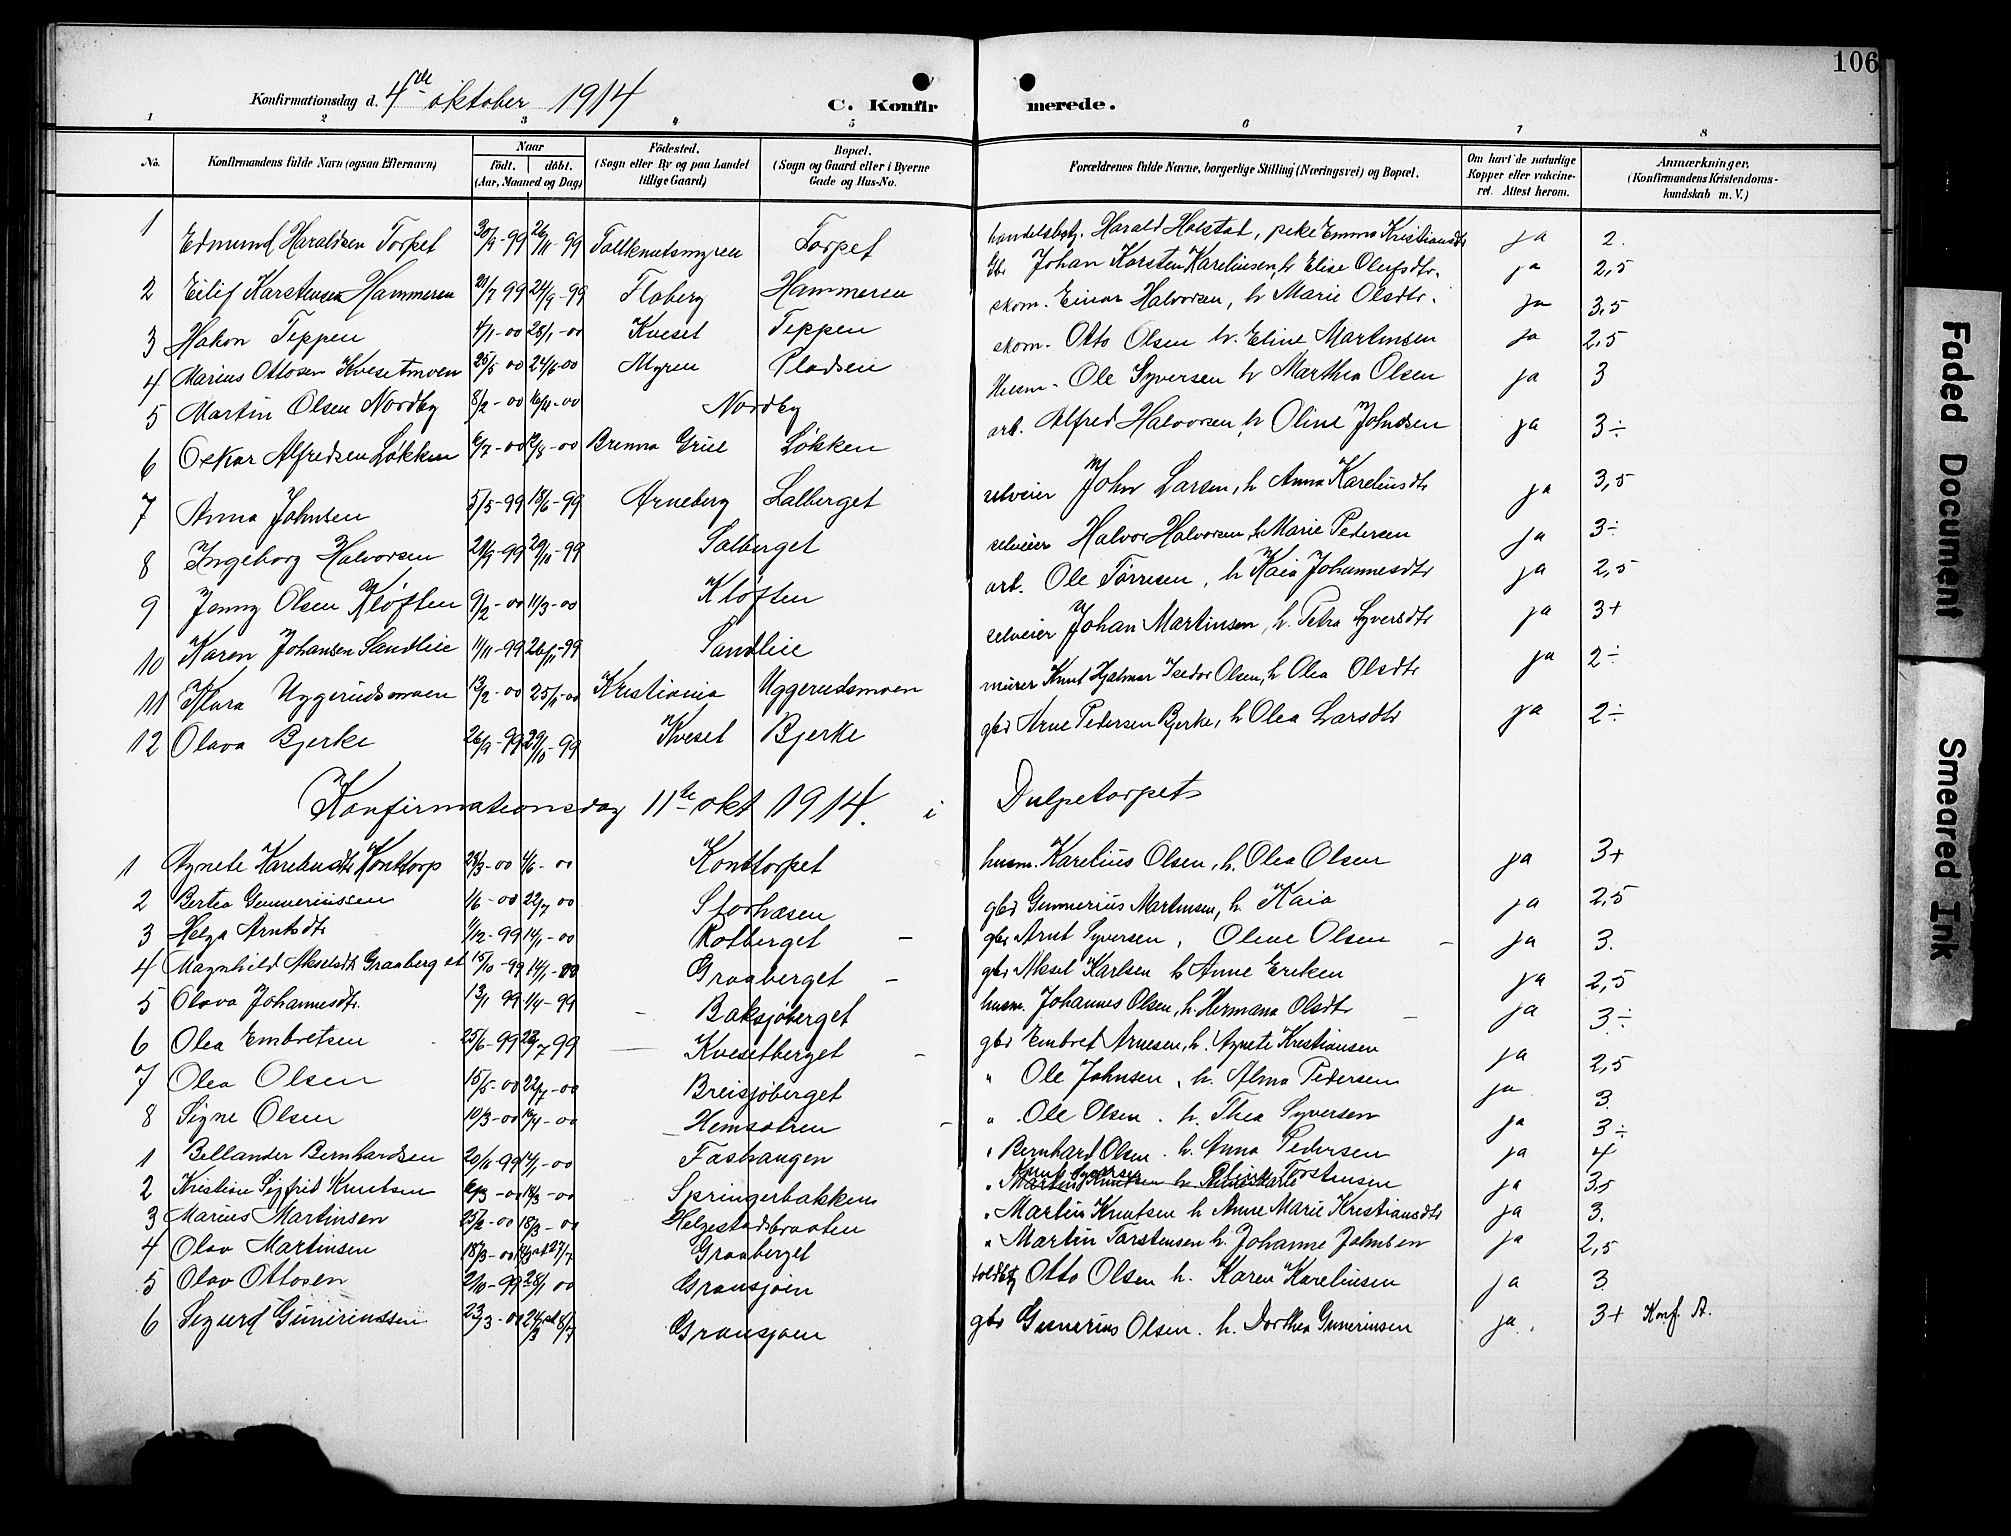 106
Konfirmationsdag d. 4de oktober 1914 C. Konfirmerede.
1 2 3 4 5 6 7 8
No. Konfirmandens fulde Navn (ogsaa Efternavn) Naar født. døbt. (Aar, Maaned og Dag) Fødested. (Sogn eller By og paa Landet tillige Gaard) Bopæl. (Sogn og Gaard eller i Byerne Gade og Hus-No. Forældrenes fulde Navne, borgerlige Stilling (Næringsvei) og Bopæl. Om havt de naturlige Kopper eller vakcineret. Attest herom. Anmærkninger, (Konfirmandens Kristendomskundskab m. V.)
1 Edmund Haraldsen Torpet 30/9-99 26/11-99 Tallknutsmyren Torpet handelsbetj. Harald Holstad, pike Emma Kristiansdtr ja 2.
2 Eilif Karstensen Hammeren 21/7 99 24/9-99 Flaberg Hammeren Gbr Johan Karsten Karelinsen, h Elise Olufsdtr. ja 2,5
3 Hakon Teppen 4/1-00 28/1-00 Kveset Teppen skom. Einar Halvorsen, h Marie Olsdtr. ja 3,5
4 Marius Ottosen Kvesetmoen 25/5 00 24/6-00 Myren Pladsen skom. Otto Olsen h. Eline Martinsen ja 2,5
5 Martin Olsen Nordby 8/2-00 16/4-00 Nordby Husm. Ole Syversen h Marthea Olsen ja 3
6 Oskar Alfredsen Løkken 6/7-00 12/8-00 Brenna Grue Løkken arb. Alfred Halvorsen h Oline Johnsen ja 3÷
7 Anna Johnsen 5/5-99 18/6-99 Arneberg Salberget selveier John Larsen, h Anna Karelinsdtr ja 3,5
8 Ingeborg Halvorsen 21/9-99 29/10-99 Salberget selveier Halvor Halvorsen, h Marie Pedersen ja 3÷
9 Jenny Olsen Kløften 9/2-00 11/3-00 Kløften arb. Ole Tørresen, h Kaia Johannesdtr ja 2,5
10 Karen Johansen Sandlie 11/11-99 26/11-99 Sandlie selveier Johan Martinsen, h. Petra Syversdtr ja 3+
11 Klara Uggerudsmoen 13/2-00 25/11-00 Kristiania Uggerudsmoen murer Knut Hjalmar Isedor Olsen, h Olea Olsdtr ja 2÷
12 Olava Bjerke 26/9-99 29/10-99 Kveset Bjerke gbr Arne Pedersen Bjerke, h Olea Larsdtr ja 2÷
Konfirmationsdag 11te okt 1914. i Dulpetorpet
1 Agnete Karelinsdtr Konttorp 28/3-00 4/6-00 Konttorpet husm. Karelius Olsen, h. Olea Olsen ja 3+
2 Bertea Gunneriussen 1/6-00 22/7 00 Storhasen gbr Gunnerius Martinsen, h. Kaia ja 2,5
3 Helga Arntsdtr 1/12-99 14/1-00 Rotberget gbr Arnt Syversen, Oline Olsen ja 3.
4 Magnhild Akselsdtr Graaberget 15/10-99 14/1-00 Graaberget gbr Aksel Karlsen h Anne Eriksen ja 2,5
5 Olava Johannesdtr. 13/1 99 1/4-99 Baksjøberget husm. Johannes Olsen, h. Hermana Olsdtr ja 3÷
6 Olea Embretsen 25/6-99 23/7 99 Kvesetberget gbr Embret Arnesen, h. Agnete Kristiansen ja 2,5
7 Olea Olsen 15/5-00 22/7-00 Breisjøberget " Ole Johnsen, h. Alma Pedersen ja 3.
8 Signe Olsen 10/3-00 16/4-00 Hemsætren " Ole Olsen. h. Thea Syversen ja 3÷
1 Bellander Bernhardsen 20/11-99 14/1-00 Fashaugen " Bernhard Olsen. h. Anna Pedersen ja 4
2 Kristian Sigfrid Knutsen 6/3-00 18/3-00 Springerbakken " Knut Syversen h. Torstensen ja 3,5
3 Marius Martinsen 25/2-00 18/3-00 Helgestadbraaten " Martin Knutsen h Anne Marie Kristiansdtr ja 3.
4 Olav Martinsen 18/3-00 27/7 Graaberget " Martin Torstensen h. Johanne Johnsen ja 2,5
5 Olav Ottosen 2/10-99 28/1 00 Gransjøen toldbetj Otto Olsen h. Karen Karelinsen ja 3.
6 Sigurd Gunerinssen 23/3-00 24/3 8/7 Gransjøen gbr Gunerius Olsen. h. Dorthea Gunerinsen ja. 3+ Konf. A.
Faded Document
Smeared Ink